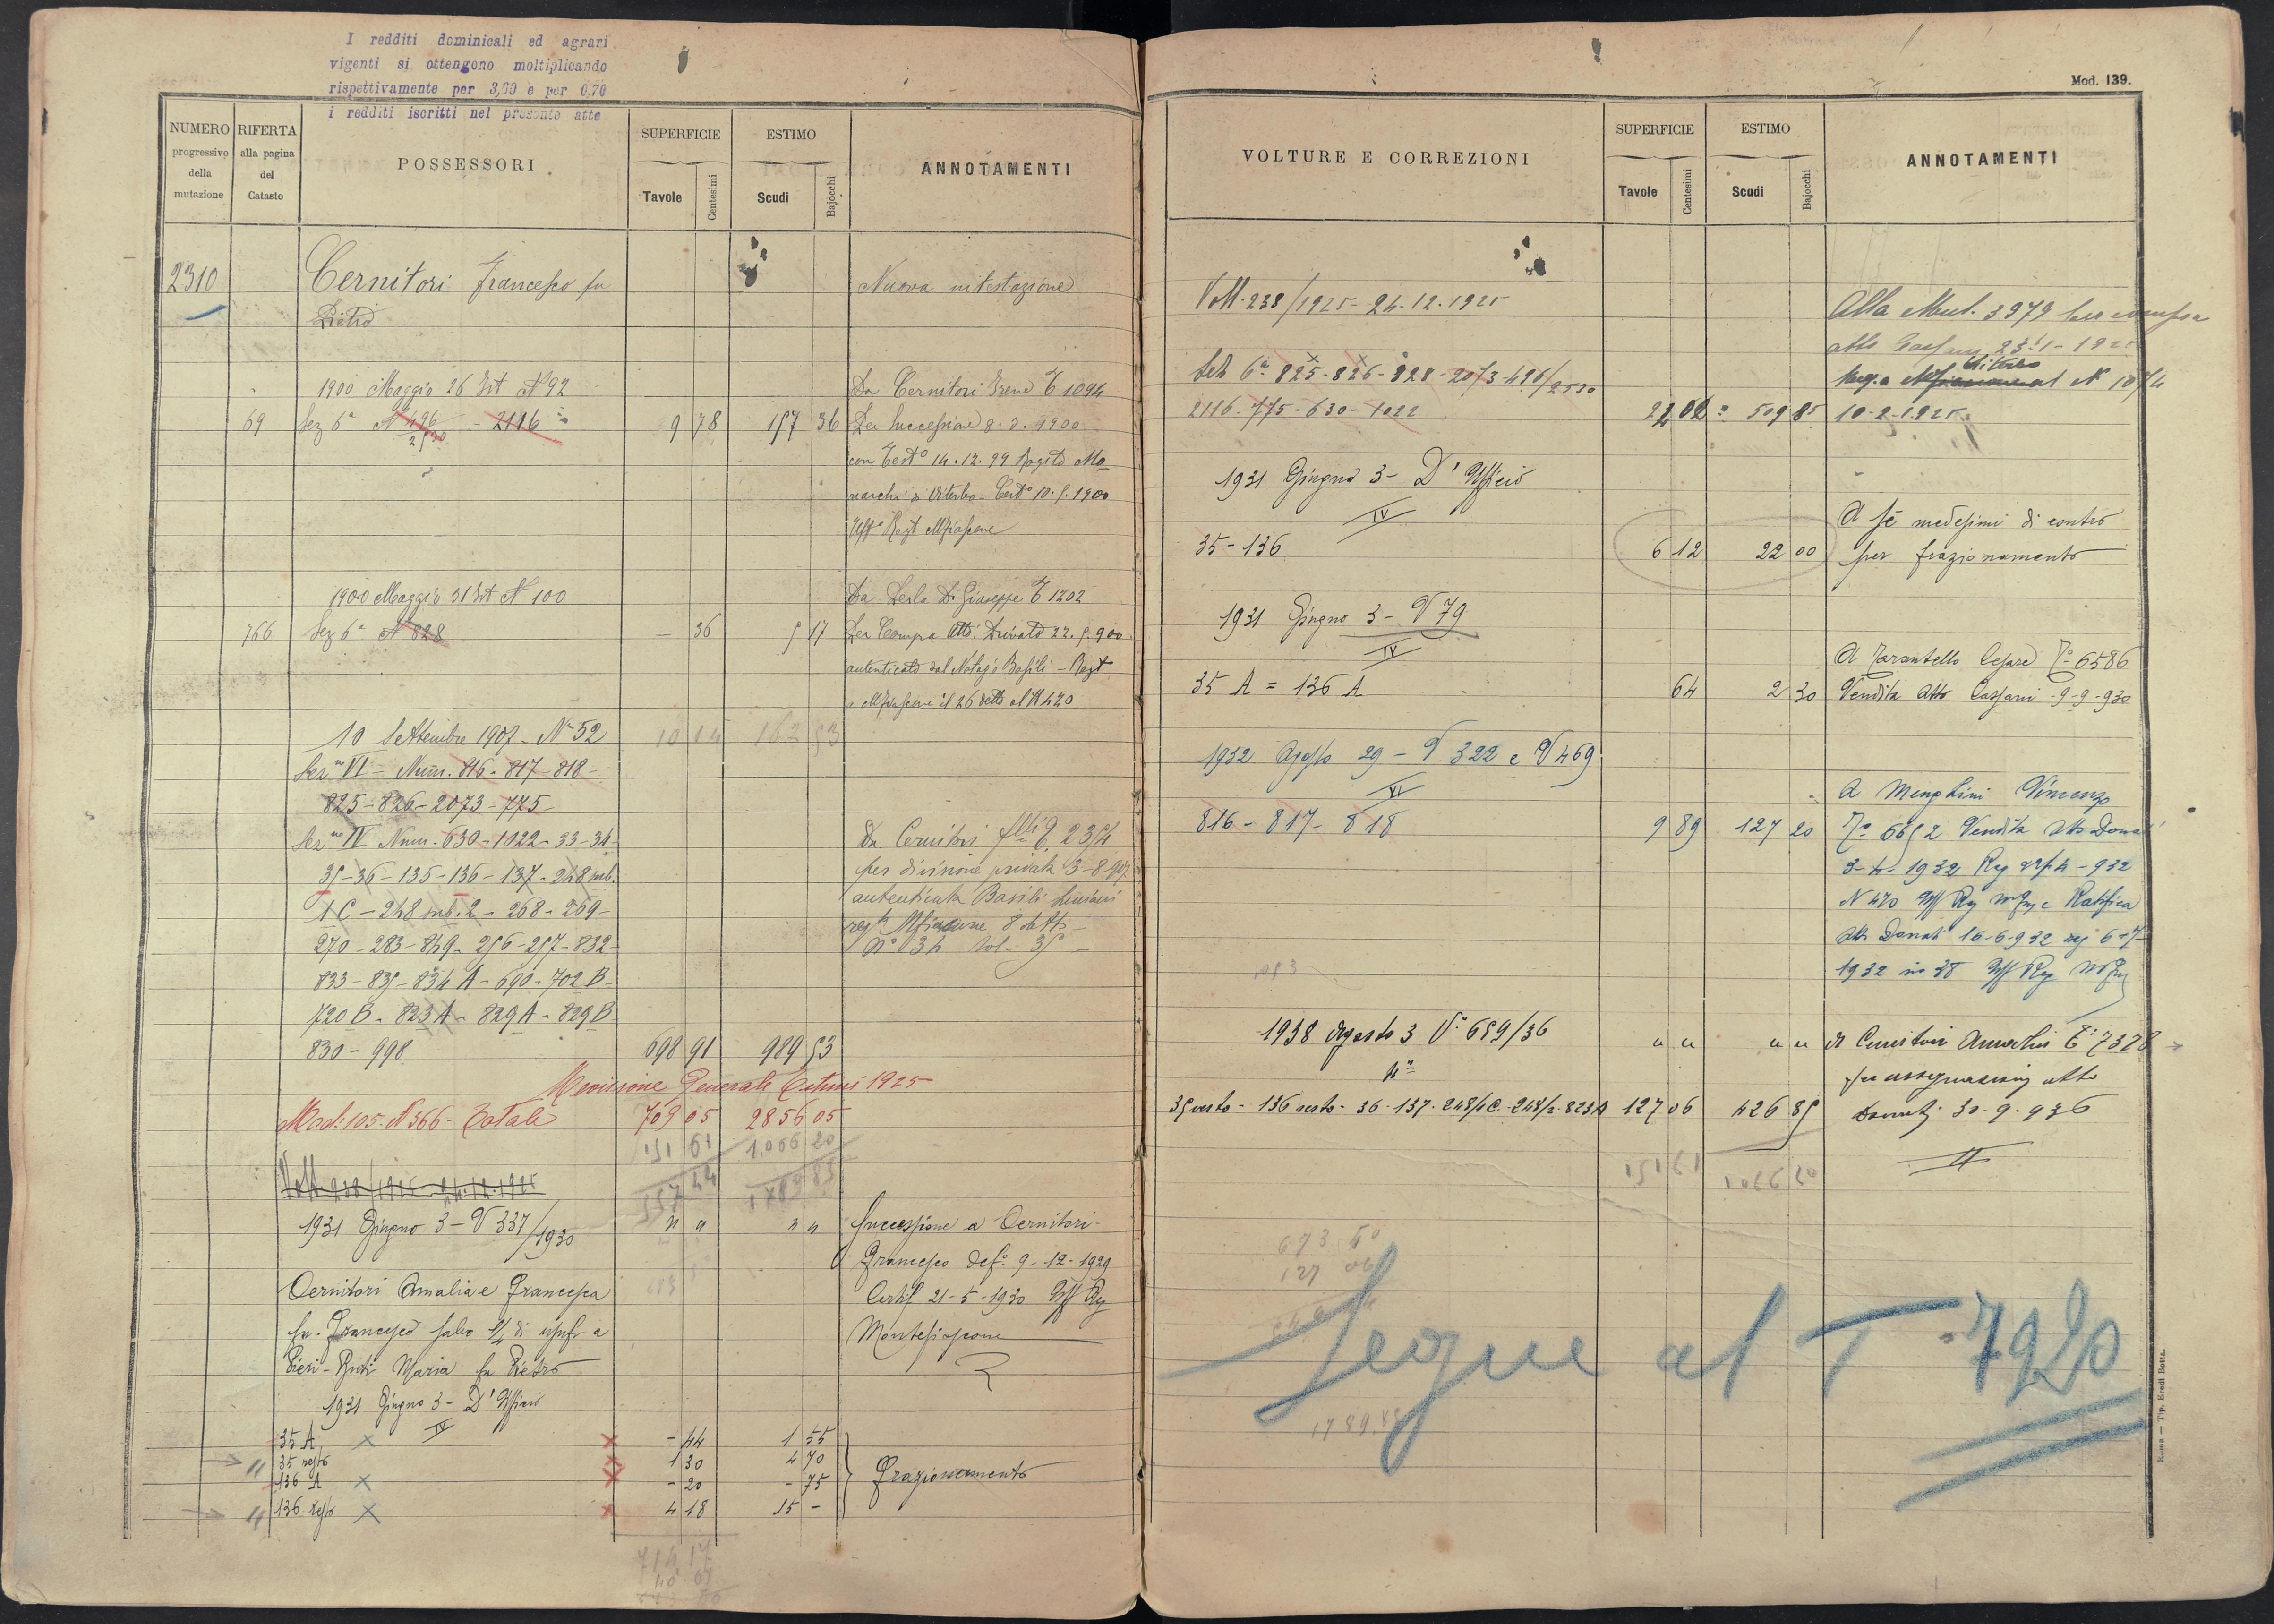 I redditi dominicali ed agrari
vigenti si ottengono moltiplicando
rispettivamente per 3,60 e per 0,70
i redditi iscritti nel presente atto
NUMERO progressivo della mutazione
RIFERTA alla pagina del Catasto
POSSESSORI
SUPERFICIE
Tavole Centesimi
ESTIMO
Scudi Bajocchi
ANNOTAMENTI
2310 Cernitori Francesco fu Nuova intestazione
Pietro
1900 Maggio 26 Nº 92 Da Cernitori Irene T 1094
69 Sez 6ª Nº 496/2530 - 2116 9 78 157 36 Per Successione 8.2.1900
con Testº 14.12.99 Rogito Mo
narchi di Viterbo - Certº 10.5.1900
Uffº Regt Mfiascone
1900 Maggio 31 Nº 100 Da Dr Giuseppe T 1202
766 Sez 6ª Nº 828 - 36 5 17 Per Compra Atto Privato 22.5.900
autenticato dal Notajo Basili - Regt
a Mfiascone il 26 detto al Nº 420
10 Settembre 1907 - Nº 52 10 14 162 53
Sezne VI - Num. 816 - 817 - 818 -
825 - 826 - 2073 - 775 -
Sezne IV Num. 630 - 1022 - 33 - 34 - Da Cernitori flli T. 2354
35 - 36 - 135 - 136 - 137 - 248 sub. per divisione privata 3-8-907
1 C - 248 sub. 2 - 268 - 269 - autenticata Basili
270 - 283 - 849 - 256 - 257 - 832 - regta Mfiascone 8 detto
833 - 835 - 834 A - 690 - 702 B - Nº 34 vol. 35
720 B - 823 A - 829 A - 829 B
830 - 998 698 91 989 53
Revisione Generale Estimi 1925
Mod. 105 - N 366 - Totale 709 05 2856 05
151 61 1.066 20
557 44 1789 85
Volt. 238/1925 24.12.1925
1931 Giugno 3 - V 337/1930 " " " " Successione a Cernitori
Francesco def. 9-12-1929
Cernitori Amalia e Francesca Certif 21-5-1930 Uff Reg
fu Francesco salvo 1/4 di usuf a Montefiascone
Pieri-Buti Maria fu Pietro
1931 Giugno 3 - D'Ufficio
IV
35 A - 44 1 55
35 resto 1 30 4 70
136 A - 20 - 75 Frazionamento
136 resto 4 18 15 -
714 17
Mod. 139.
VOLTURE E CORREZIONI
SUPERFICIE
Tavole Centesimi
ESTIMO
Scudi Bajocchi
ANNOTAMENTI
Volt. 238/1925 - 24.12.1925 Alla Mut. 3979 per compra
atto Cassani 23-1-1925
Sez 6ª 825 - 826 - 828 - 2073 - 496/2530 Reg. a Mfiascone Viterbo al Nº 1074
2116 - 775 - 630 - 1022 509 85 10-2-1925
1931 Giugno 3 - D'Ufficio
IV A sé medesimi di contro
35 - 136 6 12 22 00 per frazionamento
1931 Giugno 3 - V 79
IV A Tarantello Cesare Tº 6586
35 A = 136 A 64 2 30 Vendita atto Cassani - 9-9-930
1932 Agosto 29 - V 322 e V 469
VI A Menghini Vincenzo
816 - 817 - 818 9 89 127 20 Tº 6652 Vendita atto Donati
3-4-1932 Reg 4-932
N 470 Uff Reg e Ratifica
atto Donati 16-6-932 reg 6-7-
1932 nº 38 Uff Reg
1938 Agosto 3 Vº 659/36 " " " " A Cernitori Amalia Tº 7328
4ª per assegnazione atto
35 resto - 136 resto - 36 - 137 - 248/1C - 248/2 - 823A 127 06 426 85 Donati 30.9.936
151 61 1066 20
673 50
127 06
Segue al T 7920
1789.85
Roma — Tip. Eredi Botta.